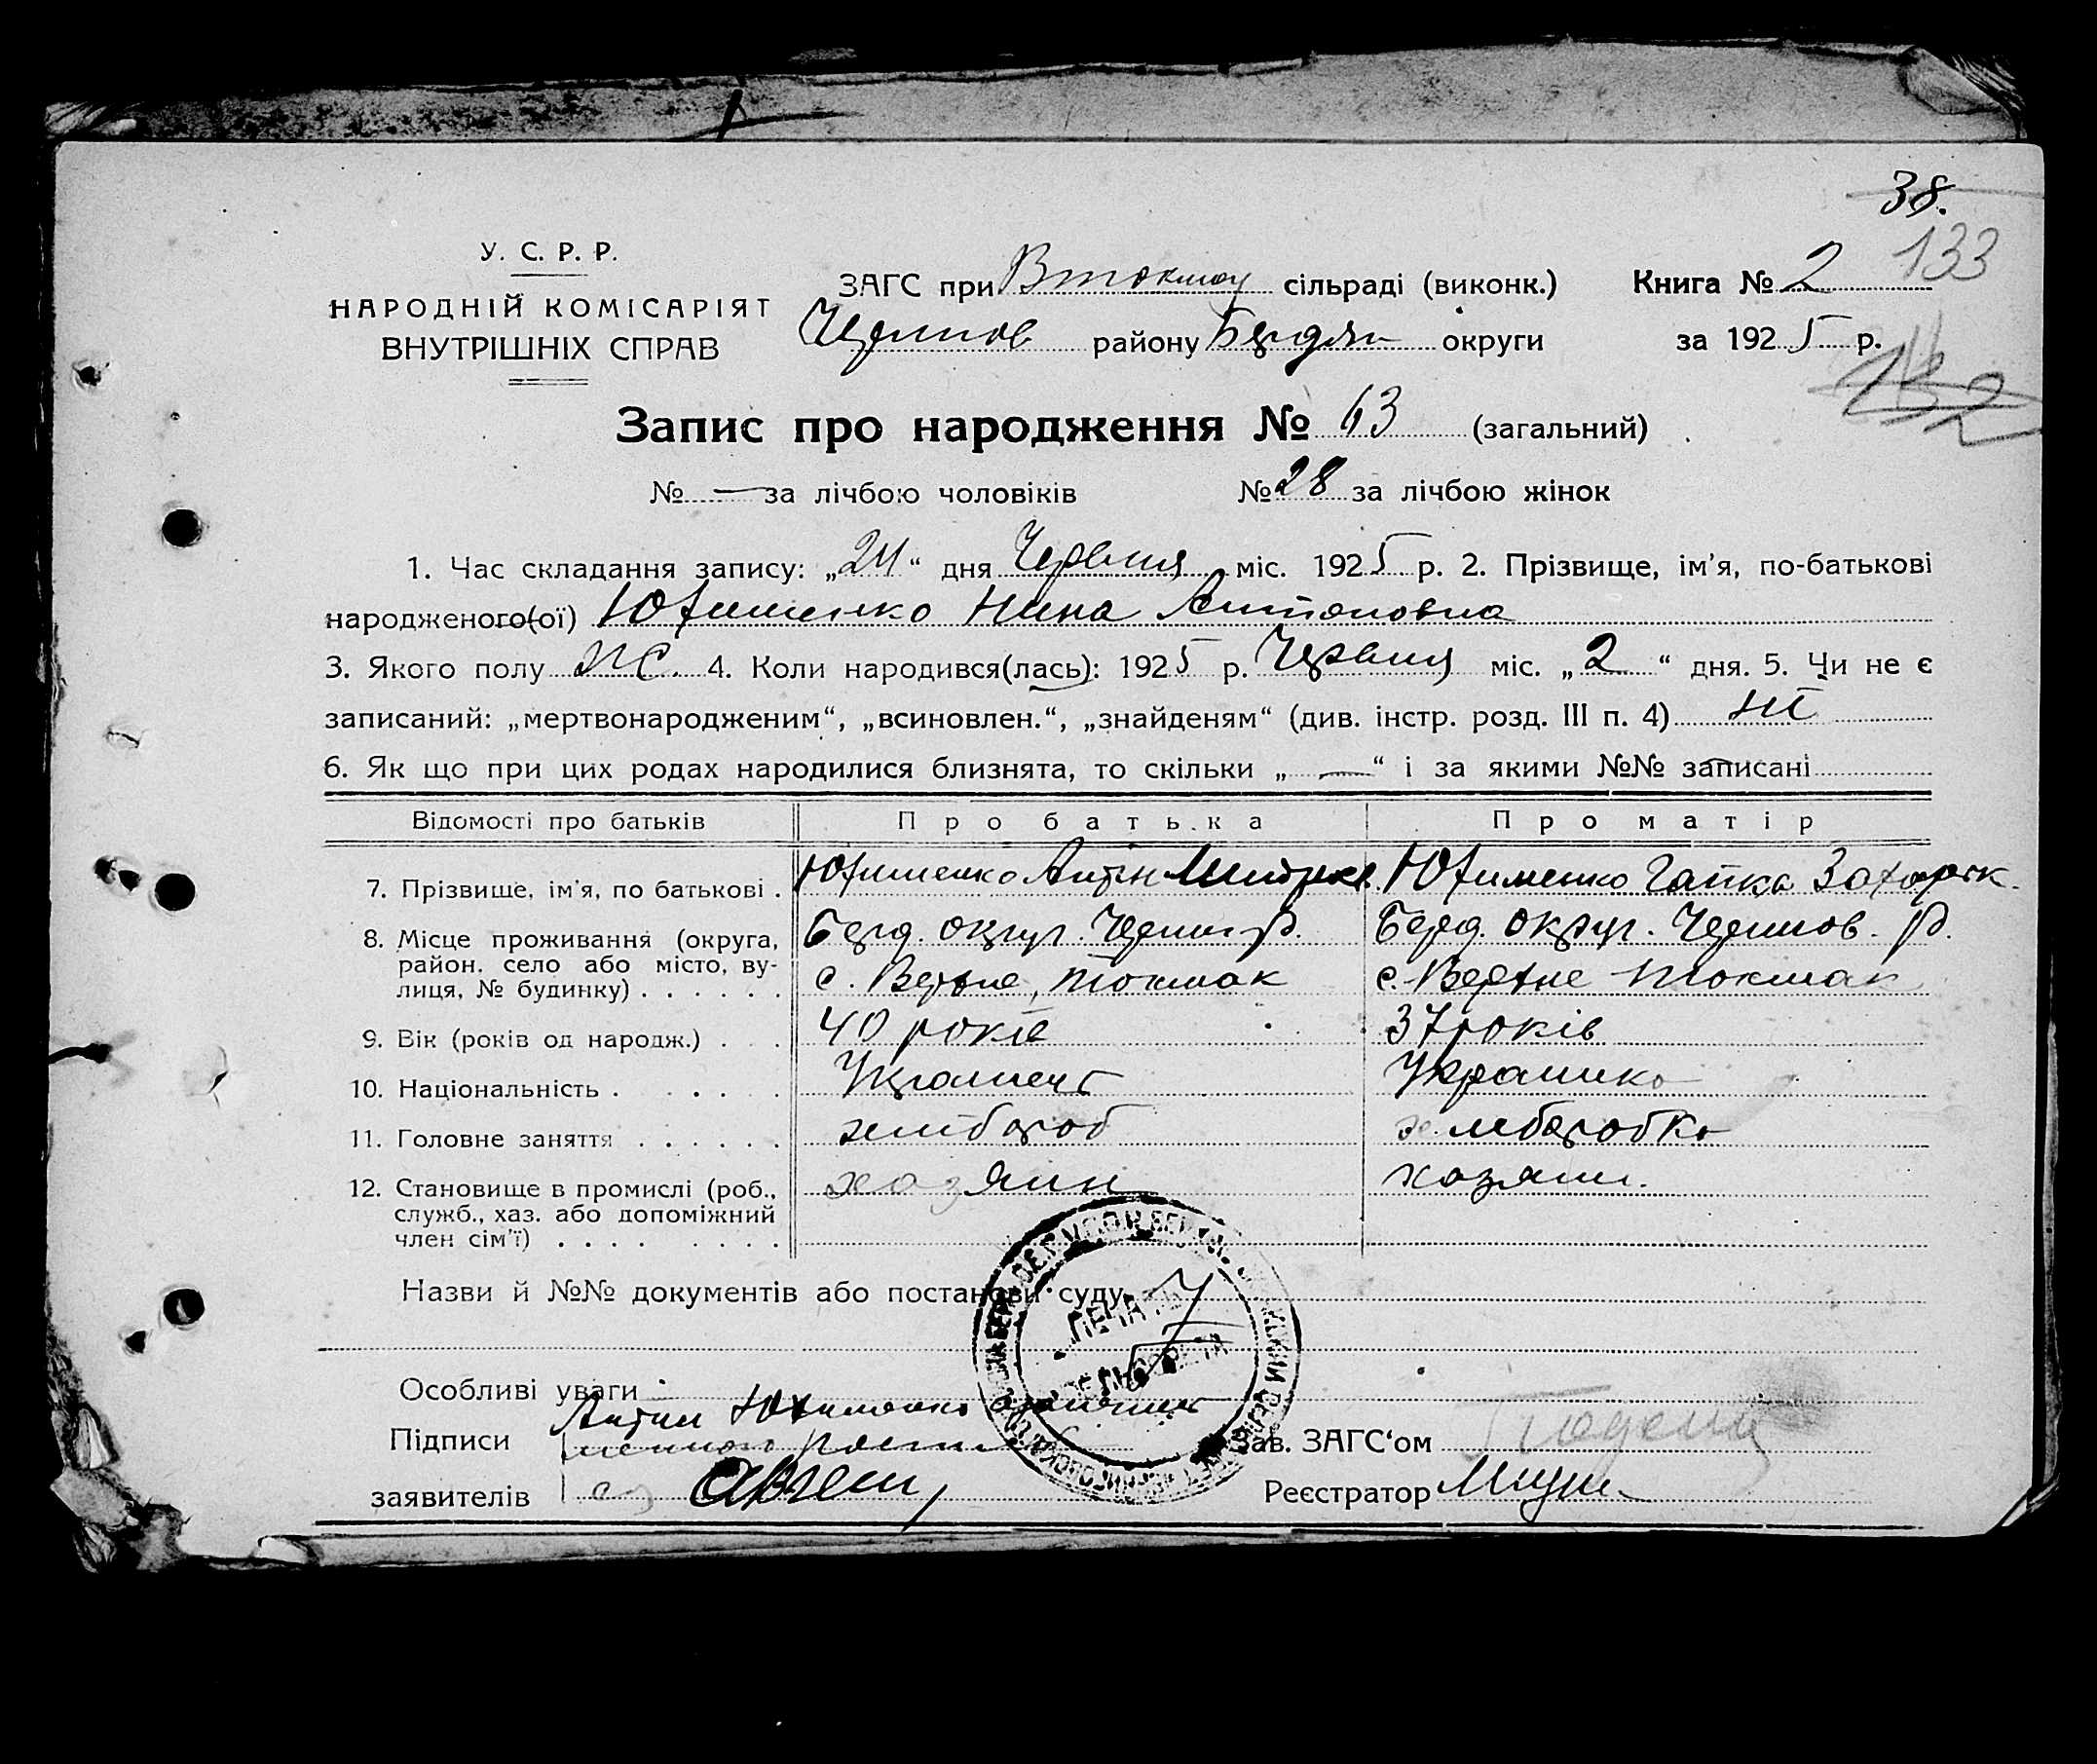 38.
133
У. С. Р. Р.
НАРОДНІЙ КОМІСАРІЯТ
ВНУТРІШНІХ СПРАВ
ЗАГС при Втокмац сільраді (виконк.) Книга № 2
району Бердян округи за 1925 р.
132
Запис про народження № 63 (загальний)
№ — за лічбою чоловіків № 28 за лічбою жінок
1. Час складання запису: „24“ дня Червня міс. 1925 р. 2. Прізвище, ім'я, по-батькові
народженого(ої) Юхименко Нина Антоновна
3. Якого полу ж. 4. Коли народився(лась): 1925 р. Червня міс. „2“ дня. 5. Чи не є
записаний: „мертвонародженим“, „всиновлен.“, „знайденям“ (див. інстр. розд. III п. 4) ні
6. Як що при цих родах народилися близнята, то скільки „—“ і за якими №№ записані
Відомості про батьків Про батька Про матір
7. Прізвище, ім'я, по батькові . Юхименко Антін Юхименко Гапка Захарк.
8. Місце проживання (округа, Берд. округ. Р. Берд. округ. Р.
район. село або місто, ву- с. Верхне, Токмак с. Верхне Токмак
лиця, № будинку) . . . . . .
9. Вік (років од народж.) . . . 40 років 37 років
10. Національність . . . . . Українець Українка
11. Головне заняття . . . . . . хлібороб хлеборобка
12. Становище в промислі (роб., хазяин хазяин.
служб., хаз. або допоміжний
член сім'ї) . . . . . . . .
Назви й №№ документів або постанови суду
ПЕЧАТЬ
Особливі уваги
Антин Юхименко
Підписи Зав. ЗАГС‘ом
заявителів Реєстратор